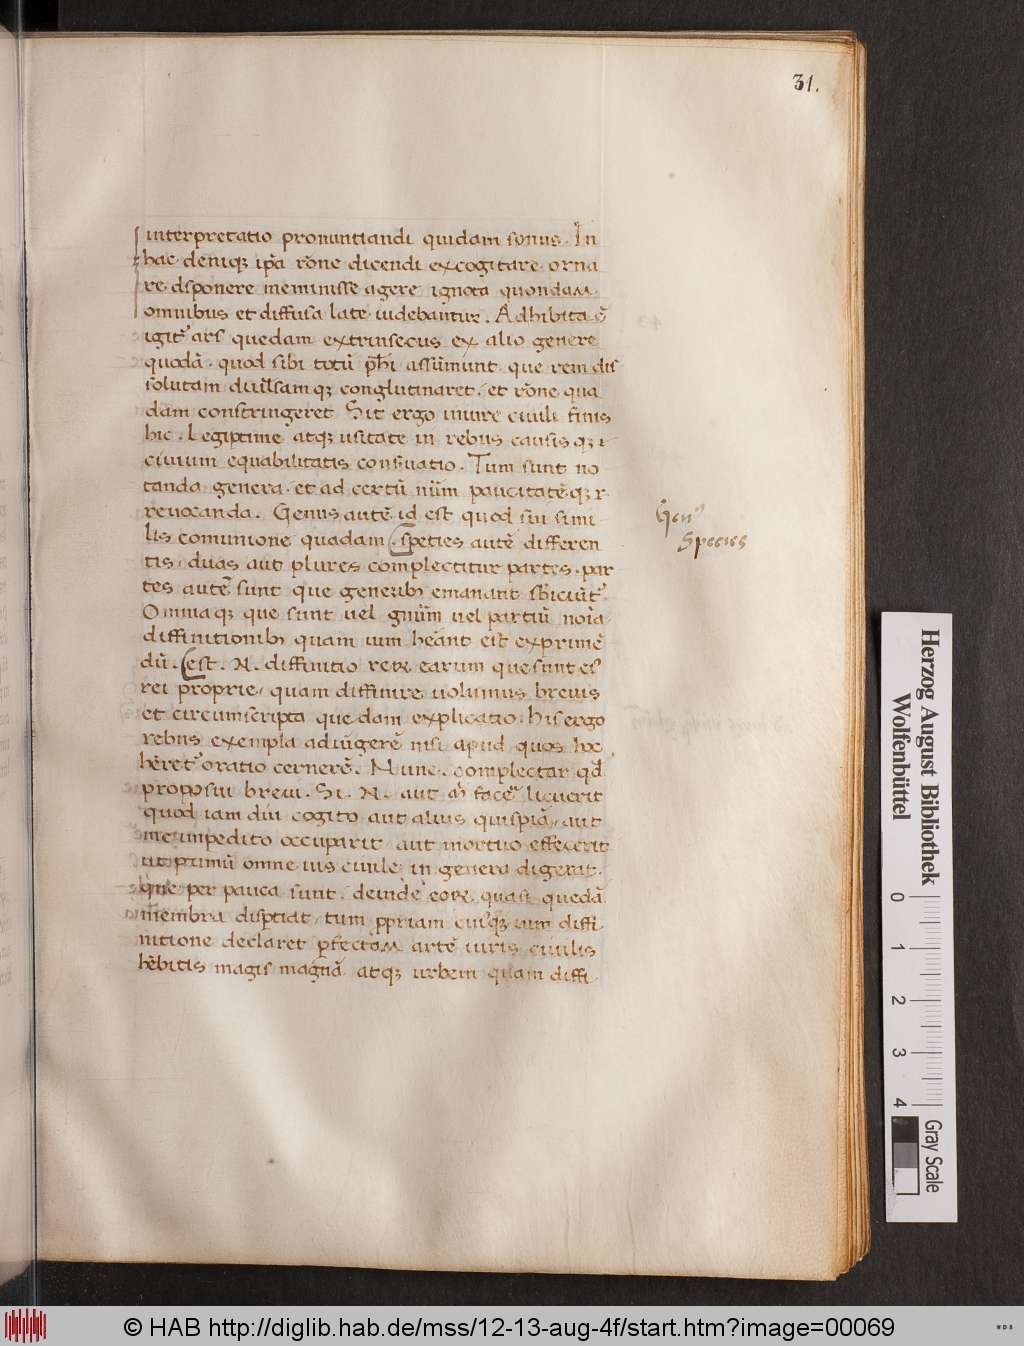 31.
interpretatio pronuntiandi quidam sonus. In
hac deniqꝫ ip̄a rōne dicendi excogitare orna
re disponere meminisse agere ignota quondam
omnibus et diffusa late uidebantur. Adhibita ē
igit᷑ ars quedam extrinsecus ex alio genere
quodā. quod sibi totū ph̄i assūmunt. que rem dis
solutam diuulsamqꝫ conglutinaret. et rōne qua
dam constringeret Sit ergo iniure ciuili finis
hic. Legiptime atqꝫ usitate in rebus causisqꝫ
ciuium equabilitatis conseruatio. Tum sunt no
tanda genera. et ad certū nūm paucitatēqꝫ
reuocanda. Genus autē id est quod sui simi
lis comunione quadam. speties autē differen
tis. duas aut plures complectitur partes. par
tes autē sunt que generibꝫ emanant
Omniaqꝫ que sunt uel uel partiū
diffinitionibꝫ quam uim
dū. est. N. diffinitio earum que sunt
rei proprie, quam diffinire uolumus breuis
et circumscripta quedam explicatio. his ergo
rebus exempla adiūgerē nisi apud quos hoc
oratio cernerē. Nunc. complectar qđ
proposui breui. Si. N. aut licuerit
quod iam diu cogito aut alius quispiā, aut
me impedito occuparit, aut mortuo effecerit
ut primū omne ius ciuile in genera digerat.
que per pauca sunt. deinde quasi quedā
membra disptiat, tum ꝓpriam uim diffi
nitione declaret ꝑfectam artē iuris ciuilis
hēbitis magis magnā atqꝫ urbem quam diffi
Gen᷒
Species
Herzog August Bibliothek
Wolfenbüttel
0 1 2 3 4
Gray Scale
© HAB http://diglib.hab.de/mss/12-13-aug-4f/start.htm?image=00069